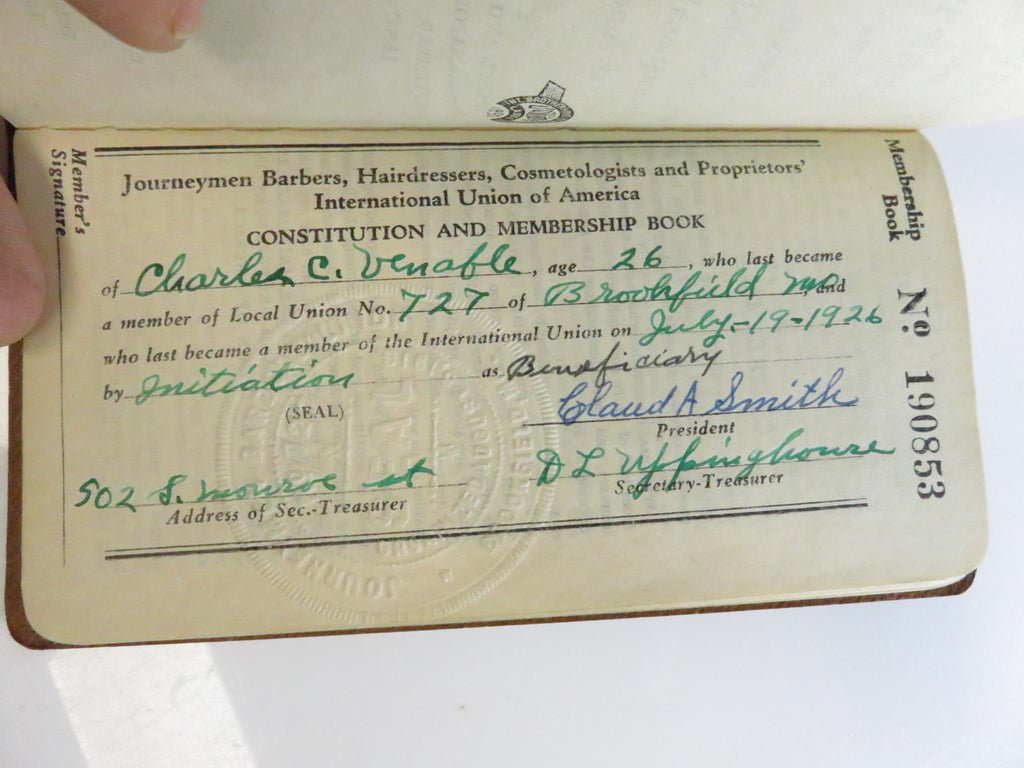 Member's
Signature
Journeymen Barbers, Hairdressers, Cosmetologists and Proprietors'
International Union of America
CONSTITUTION AND MEMBERSHIP BOOK
of Charles C. Venable, age 26, who last became
a member of Local Union No. 727 of Brookfield Mo, and
who last became a member of the International Union on July-19-1926
by Initiation as Beneficiary
(SEAL)
Claud A Smith
President
D L Uppinghouse
Secretary-Treasurer
502 S. Monroe st
Address of Sec.-Treasurer
Membership
Book
No 190853